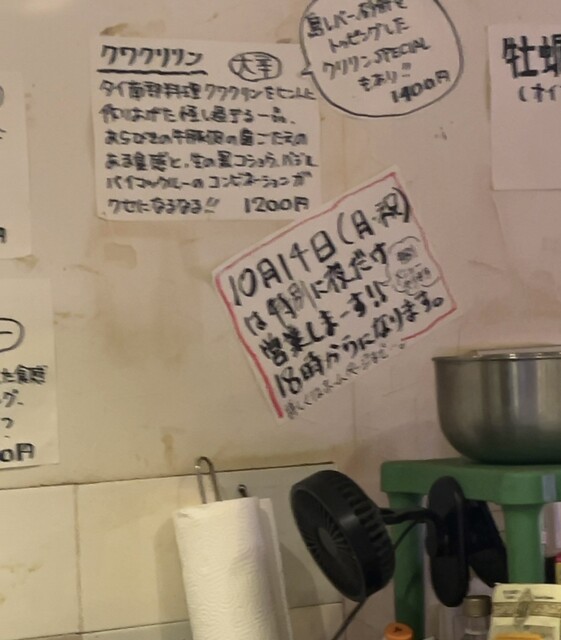 クワクリリン 大辛
タイ南部料理クワクリンをヒントに
作りあげた極し過ぎる一品。
あらびきの牛豚挽肉の歯ごたえの
ある食感と、生の黒コショウ、バジル
バイマックルーのコンビネーションが
クセになるなる!! 1200円
鳥レバー
トッピングした
クリリンSPECIAL
もあり!! 1400円
牡蠣
(タイ
10月14日(月・祝)
は特別に夜だけ
営業しまーす!!
18時からになります。
た食感
グ、
つ
0円
円